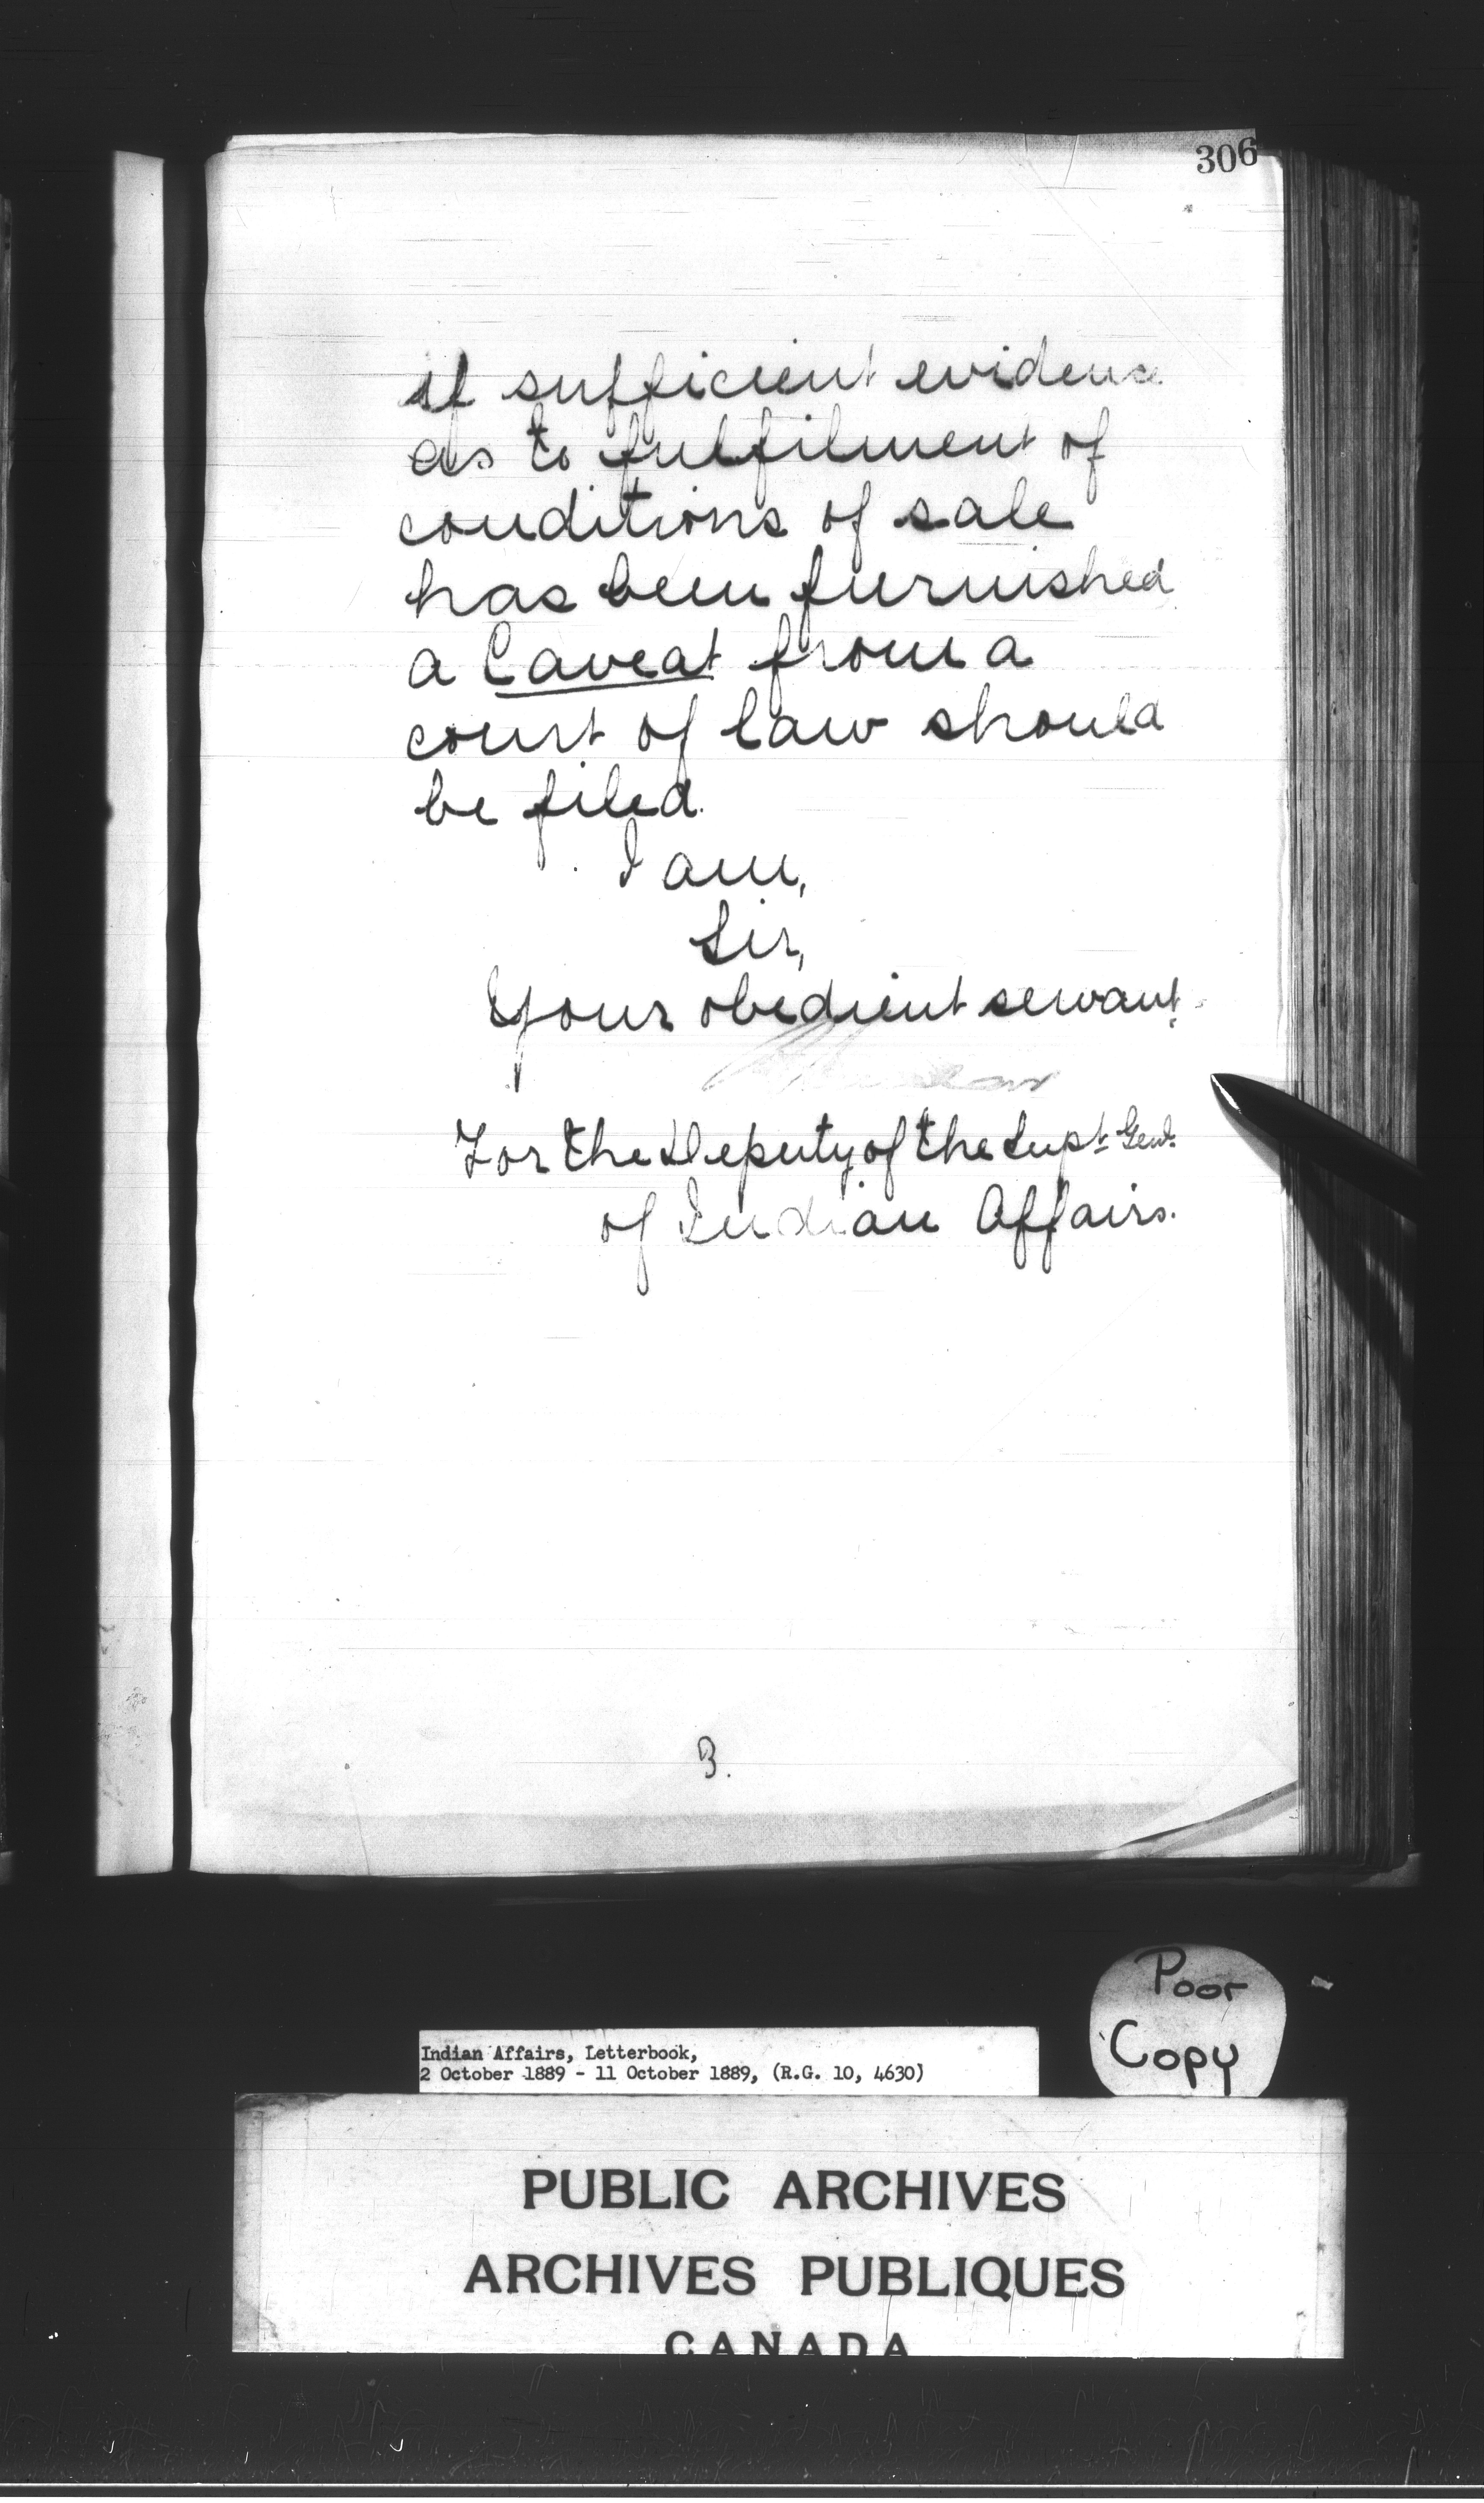 306
if sufficient evidence
as to fulfilment of
conditions of sale
has been furnished
a Caveat from a
court of law should
be filed.
I am,
Sir,
Your obedient servant,
For the Deputy of the Supt. Genl.
of Indian Affairs.
3.
Poor
Copy
Indian Affairs, Letterbook,
2 October 1889 - 11 October 1889, (R.G. 10, 4630)
PUBLIC ARCHIVES
ARCHIVES PUBLIQUES
CANADA